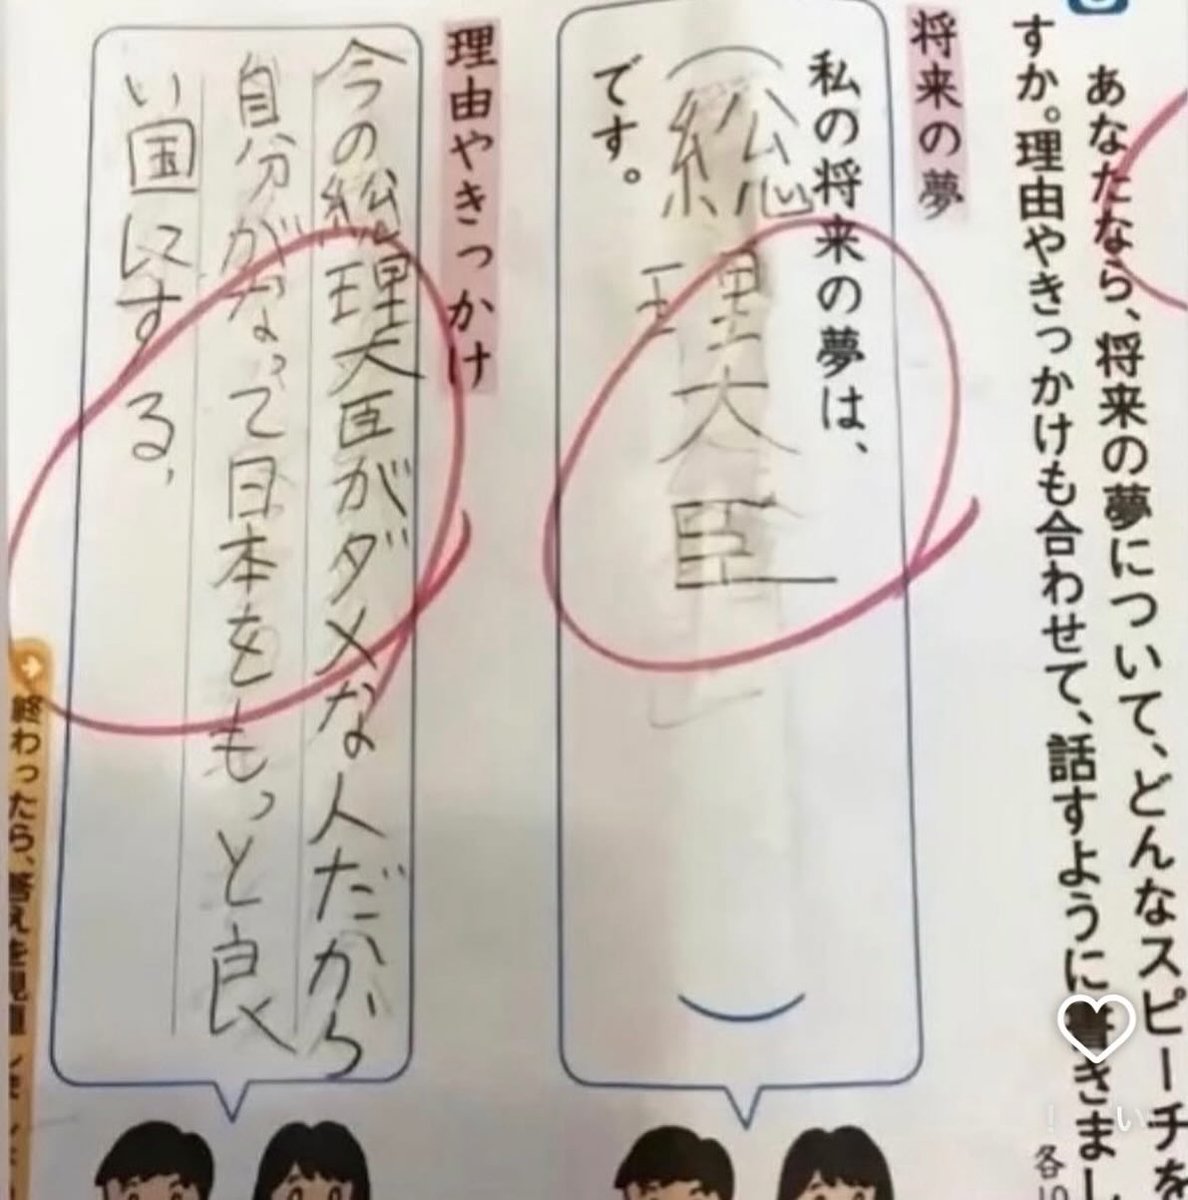 あなたなら、将来の夢について、どんなスピーチを
すか。理由やきっかけも合わせて、話すように書きまし
各10
将来の夢
私の将来の夢は、
（総理大臣）
です。
理由やきっかけ
今の総理大臣がダメな人だから
自分がなって日本をもっと良
い国にする、
終わったら、答えを見直しま